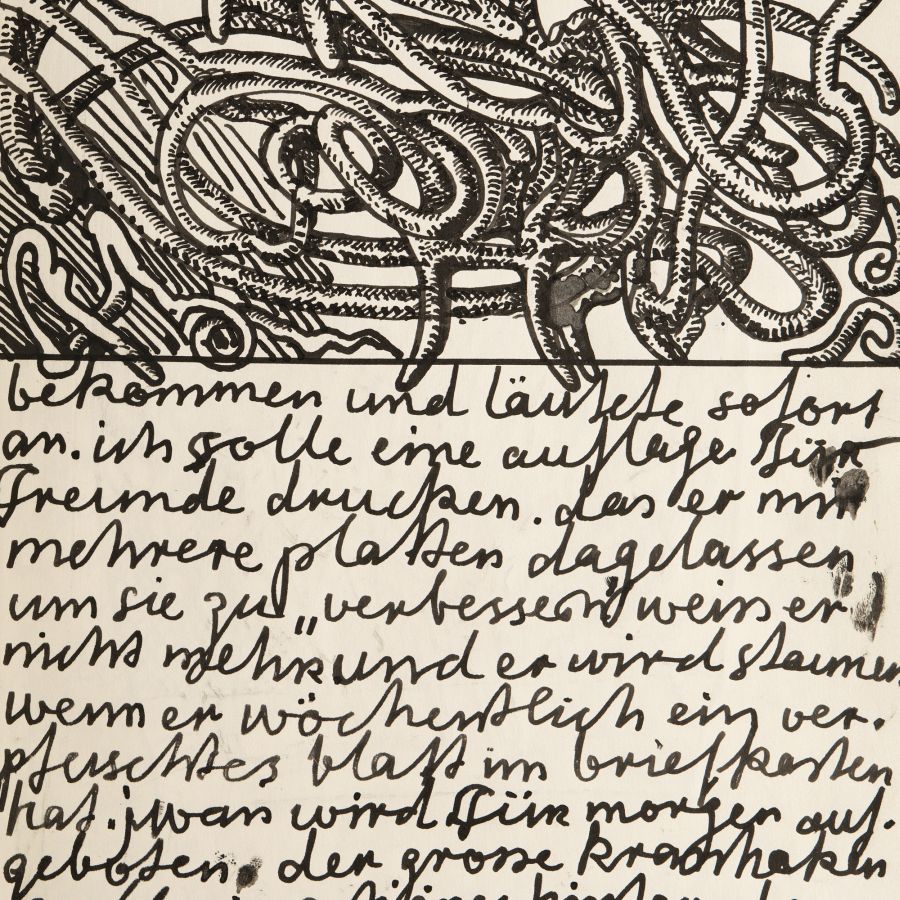 bekommen und läutete sofort
an. ich solle eine auflage für
Freunde drucken. das er mir
mehrere platten dagelassen
um sie zu „verbessern" weiss er
nicht mehr und er wird staunen
wenn er wöchentlich ein ver.
pfuschtes blatt im briefkasten
hat. iwan wird für morgen auf.
geboten. der grosse